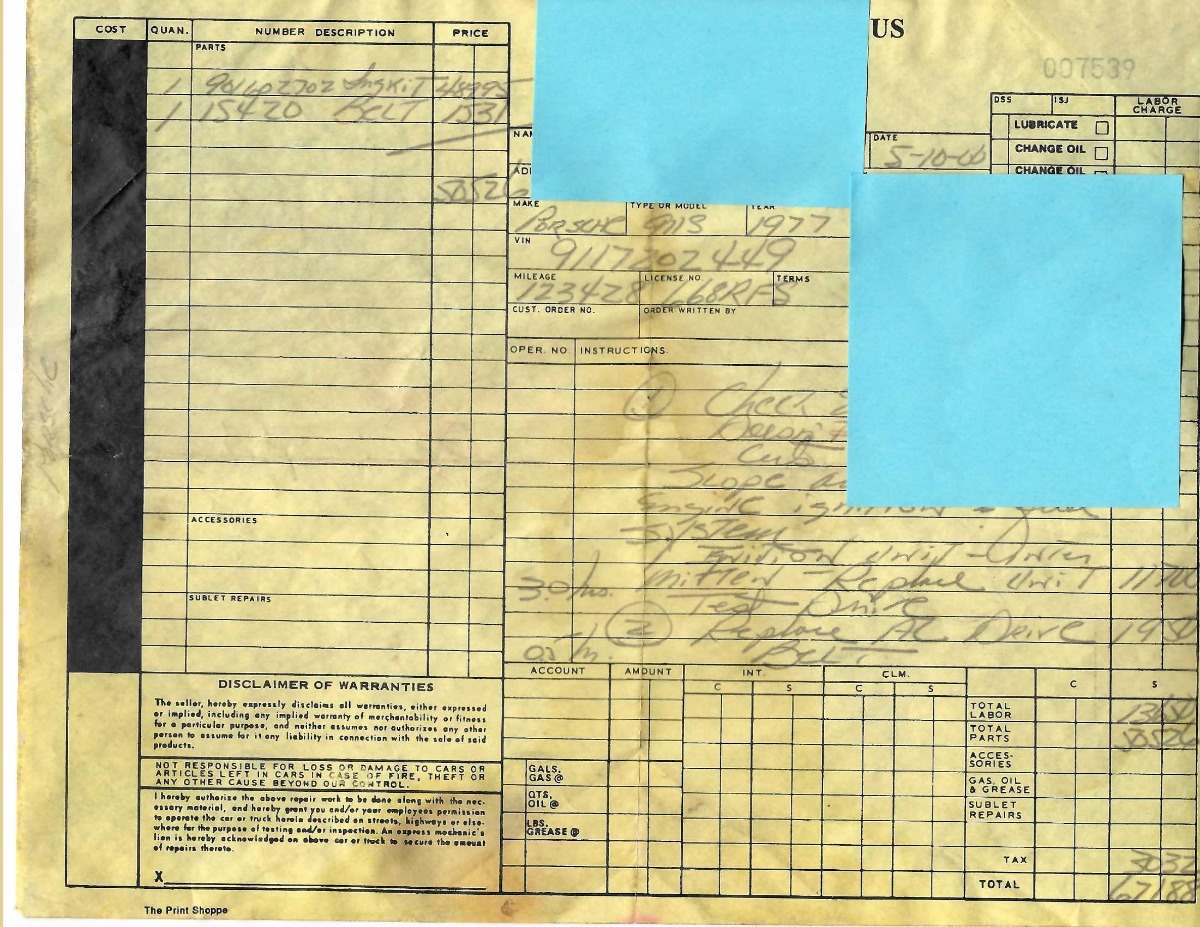 COST QUAN. NUMBER DESCRIPTION PRICE
PARTS
1 901602702 IngKiT 48995
1 15420 BELT 1531
50526
US
007539
DSS ISJ LABOR CHARGE
LUBRICATE
CHANGE OIL
CHANGE OIL
DATE
5-10-00
MAKE TYPE OR MODEL YEAR
PORSCHE 911S 1977
VIN
9117202449
MILEAGE LICENSE NO. TERMS
123428 668RFS
CUST. ORDER NO. ORDER WRITTEN BY
OPER. NO. INSTRUCTIONS:
1 Check
Doesn't
Cuts
Scope
Engine ignition &
System
unit
3.0 hrs. Replace Unit 11700
Test Drive
2 Replace AC Drive 1950
Belt
ACCESSORIES
SUBLET REPAIRS
DISCLAIMER OF WARRANTIES
The seller, hereby expressly disclaims all warranties, either expressed
or implied, including any implied warranty of merchantability or fitness
for a particular purpose, and neither assumes nor authorizes any other
person to assume for it any liability in connection with the sale of said
products.
NOT RESPONSIBLE FOR LOSS OR DAMAGE TO CARS OR
ARTICLES LEFT IN CARS IN CASE OF FIRE, THEFT OR
ANY OTHER CAUSE BEYOND OUR CONTROL.
I hereby authorize the above repair work to be done along with the nec-
essary material, and hereby grant you and/or your employees permission
to operate the car or truck herein described on streets, highways or else-
where for the purpose of testing and/or inspection. An express mechanic's
lien is hereby acknowledged on above car or truck to secure the amount
of repairs thereto.
X
The Print Shoppe
ACCOUNT AMOUNT INT. CLM.
C S C S C S
GALS. GAS @
QTS. OIL @
LBS. GREASE @
TOTAL LABOR 13650
TOTAL PARTS 50526
ACCES-SORIES
GAS, OIL & GREASE
SUBLET REPAIRS
TAX 3032
TOTAL 67188